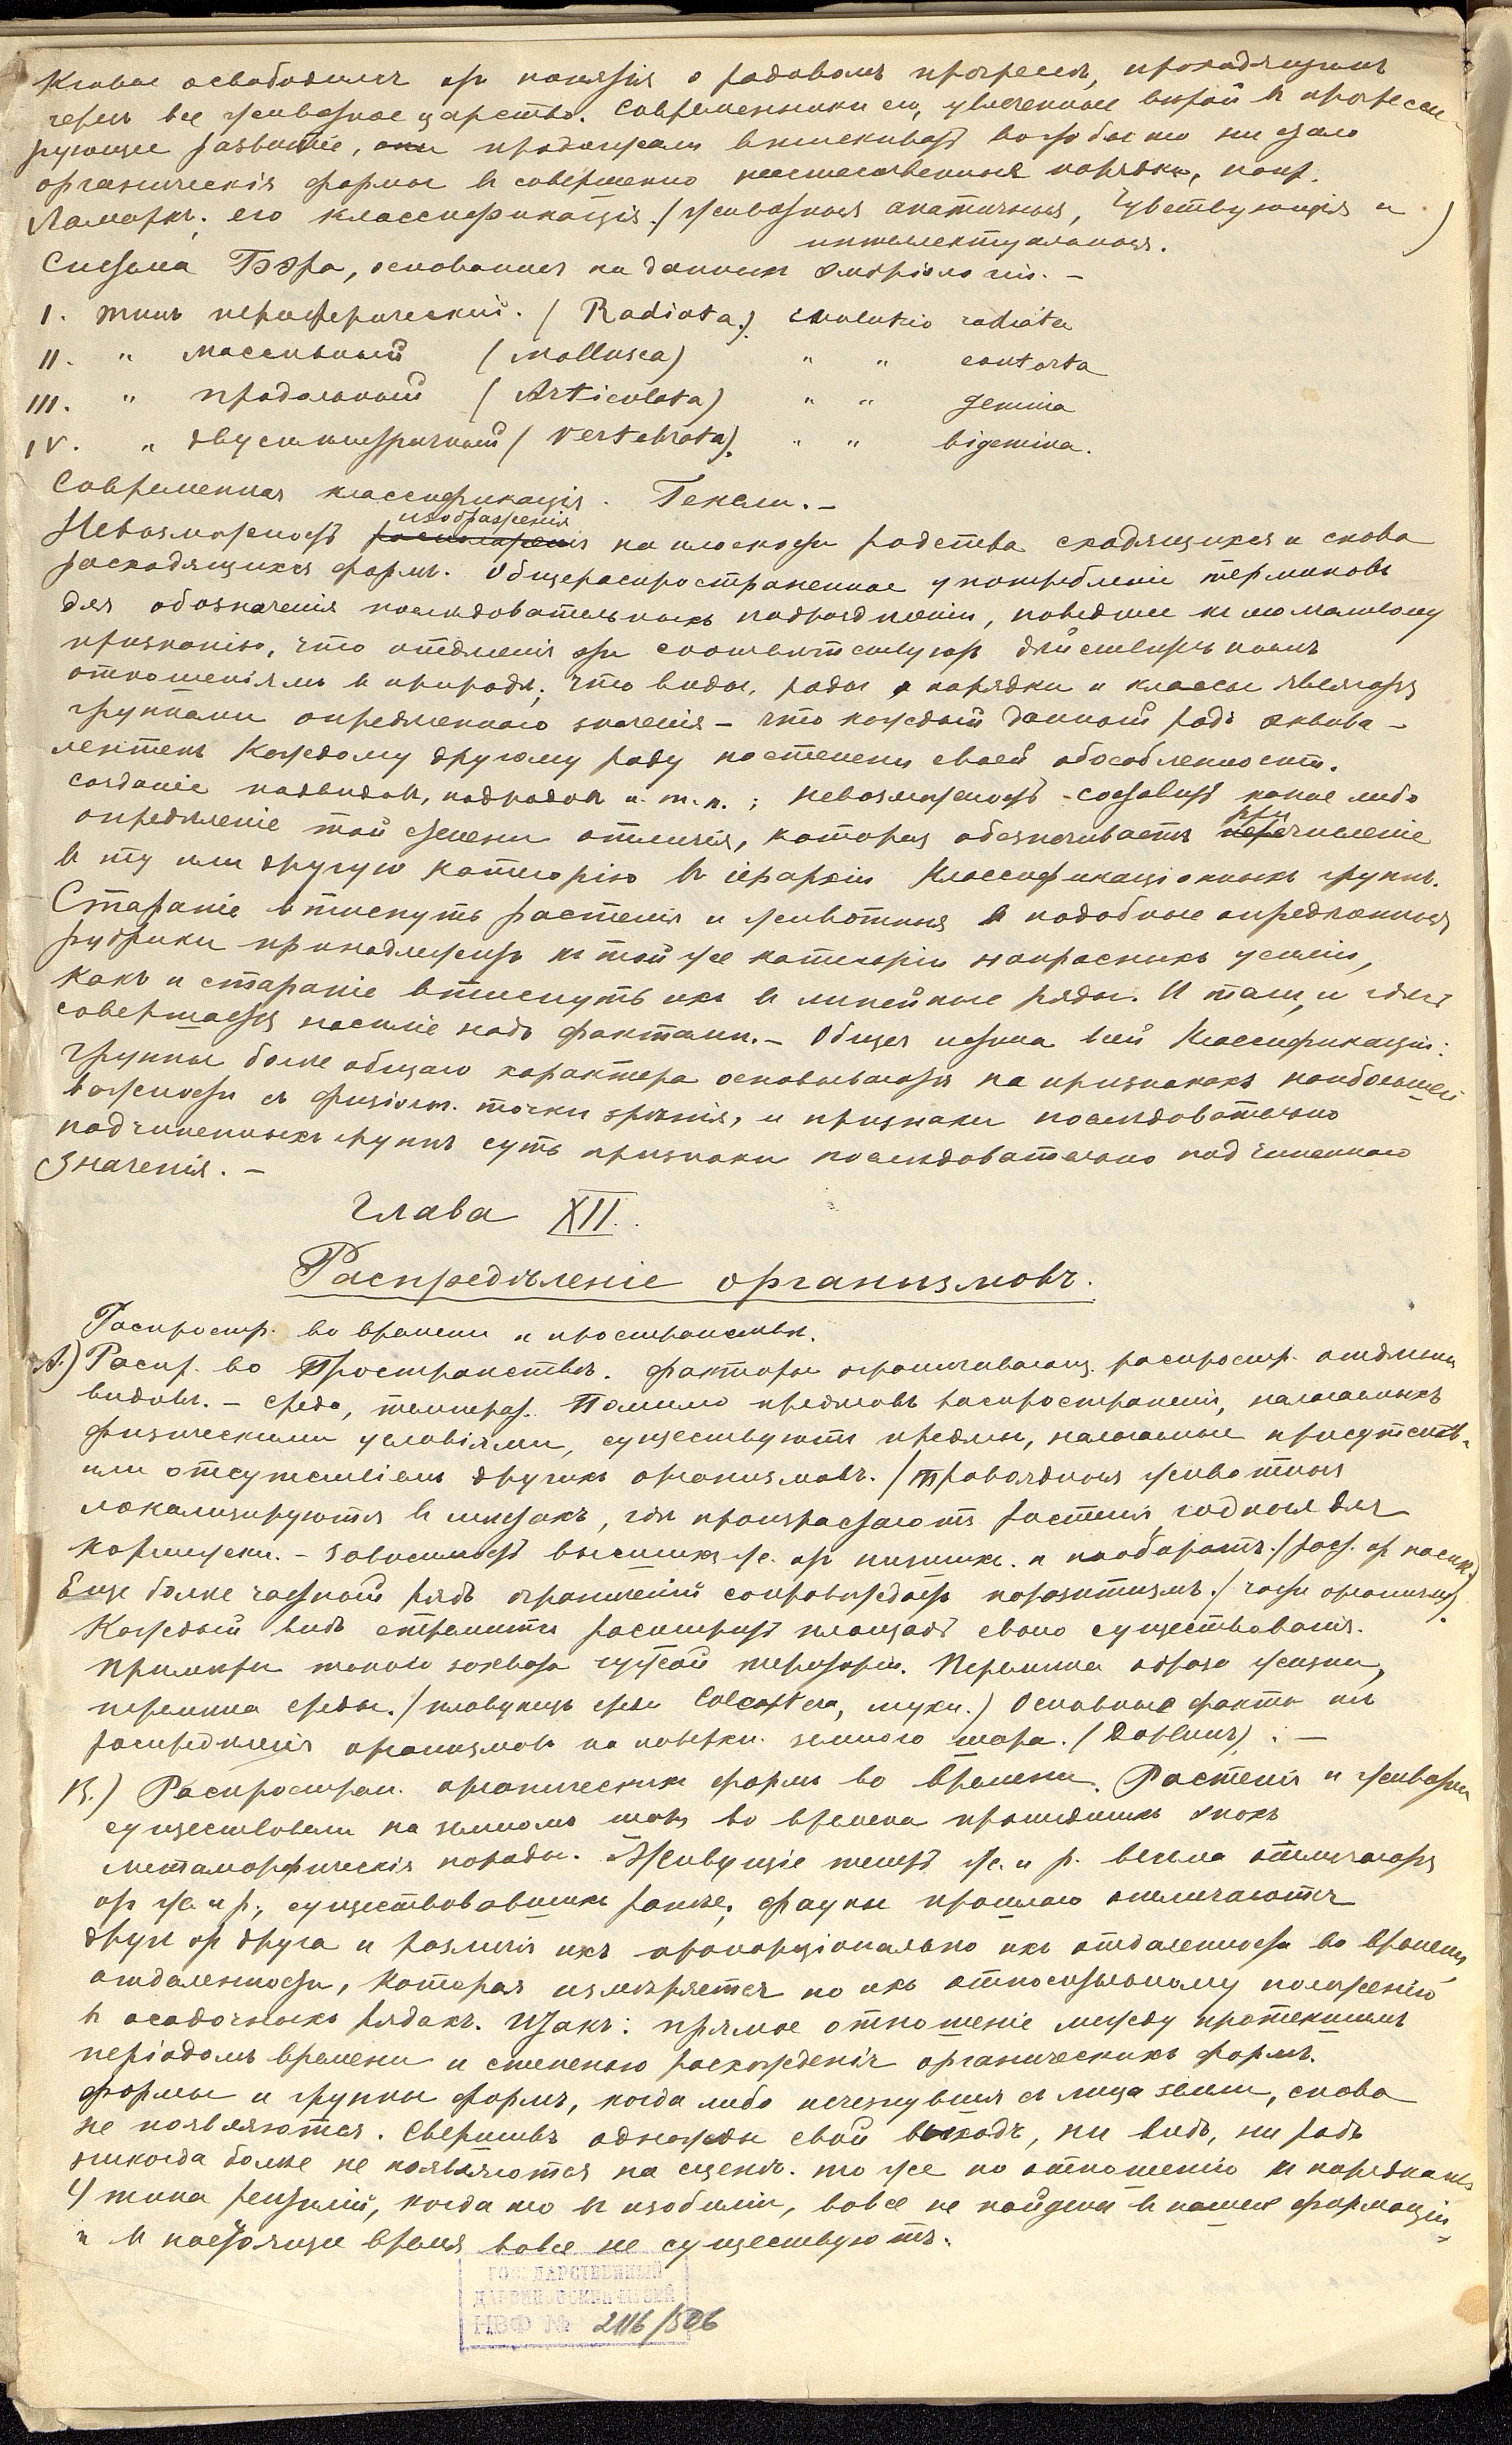 Кювье освободился отъ понятія о родовомъ прогрессѣ, проходящимъ
черезъ все животное царство. Современники его, увлеченные вѣрой въ прогресси-
рующее развитіе, продолжали втискивать во что бы то ни стало
органическія формы въ совершенно неестественныя порядки, напр.
Ламаркъ; его классификація. (животныя апатичныя, чувствующія и
интеллектуальныя.)
Система Бэра, основанная на данныхъ эмбріологіи. –
I. типъ периферическій. (Radiata.) evolutio radiata
II. " массивный (Mollusca) " " contorta
III. " продольный (Articulata) " " gemina
IV. " двусимметричный (Vertebrata). " " bigemina.
Современная классификація. Гексли. –
изображенія
Невозможность на плоскости родства сходящихся и снова
расходящихся формъ. Общераспространенное употребленіе терминовъ
для обозначенія послѣдовательныхъ подраздѣленій, поведшее къ молчаливому
признанію, что отдѣленія эти соотвѣтствуютъ дѣйствительнымъ
отношеніямъ въ природѣ; что виды, роды, порядки и классы являются
группами опредѣленнаго значенія – что каждый данный родъ эквива-
лентенъ каждому другому роду по степени своей обособленности.
созданіе подвидовъ, подродовъ и. т. п.; невозможность составить какое либо
опредѣленіе той степени отличія, которая обезпечиваетъ причисленіе
въ ту или другую категорію въ іерархіи классификаціонныхъ группъ.
Стараніе втиснуть растенія и животныя въ подобные опредѣленныя
рубрики принадлежитъ къ той же категоріи напрасныхъ усилій,
какъ и стараніе втиснуть ихъ въ линейные ряды. И тамъ, и здѣсь
совершается насиліе надъ фактами. – Общая истина всей классификаціи:
группы болѣе общаго характера основываются на признакахъ наибольшей
важности съ физіол. точки зрѣнія, и признаки послѣдовательно
подчиненныхъ группъ суть признаки послѣдовательно подчиненнаго
значенія. –
Глава XII.
Распредѣленіе организмовъ.
Распростр. во времени и пространствѣ.
А.) Распр. во Пространствѣ. Факторы ограничивающ. распростр. отдѣльн.
видовъ. – среда, температ. Помимо предѣловъ распространенія, налагаемыхъ
физическими условіями, существуютъ предѣлы, налагаемые присутств.
или отсутствіемъ другихъ организмовъ. (травоядныя животныя
локализируются въ мѣстахъ, гдѣ произрастаютъ растенія годныя для
кормежки. – зависимость высшихъ ж. отъ низшихъ. и наоборотъ. (раст. отъ насѣк.)
Еще болѣе частный рядъ ограниченій сопровождаетъ паразитизмъ. (части организма).
Каждый видъ стремится расширить площадь своего существованія.
Примѣры такого захвата чужой территоріи. Перемѣна образа жизни,
перемѣна среды. (плавунецъ среди Coleoptera, мухи.) Основные факты въ
распредѣленіи организмовъ на поверхн. земного шара. (Дарвинъ) : –
В.) Распростран. органическихъ формъ во времени. Растенія и животн.
существовали на земномъ шарѣ во времена прошедшихъ эпохъ
метаморфическія породы. Живущіе теперь ж. и р. весьма отличаются
отъ ж. и р., существовавшихъ ранѣе; фауны прошлаго отличаются
другъ отъ друга и различія ихъ пропорціонально ихъ отдаленности во времени,
отдаленности, которая измѣряется по ихъ относительному положенію
въ осадочныхъ рядахъ. Итакъ: прямое отношеніе между протекшимъ
періодомъ времени и степенью расхожденія органическихъ формъ.
Формы и группы формъ, когда либо исчезнувшія съ лица земли, снова
не появляются. Свершивъ однажды свой выходъ, ни видъ, ни родъ
никогда болѣе не появляются на сценѣ. то же по отношенію къ порядкамъ
4 типа рептилій, когда то въ изобиліи, вовсе не найдены въ нашей формаціи
и въ настоящее время вовсе не существуютъ.
ГОСУДАРСТВЕННЫЙ
ДАРВИНОВСКИЙ МУЗЕЙ
НВФ № 2116/506